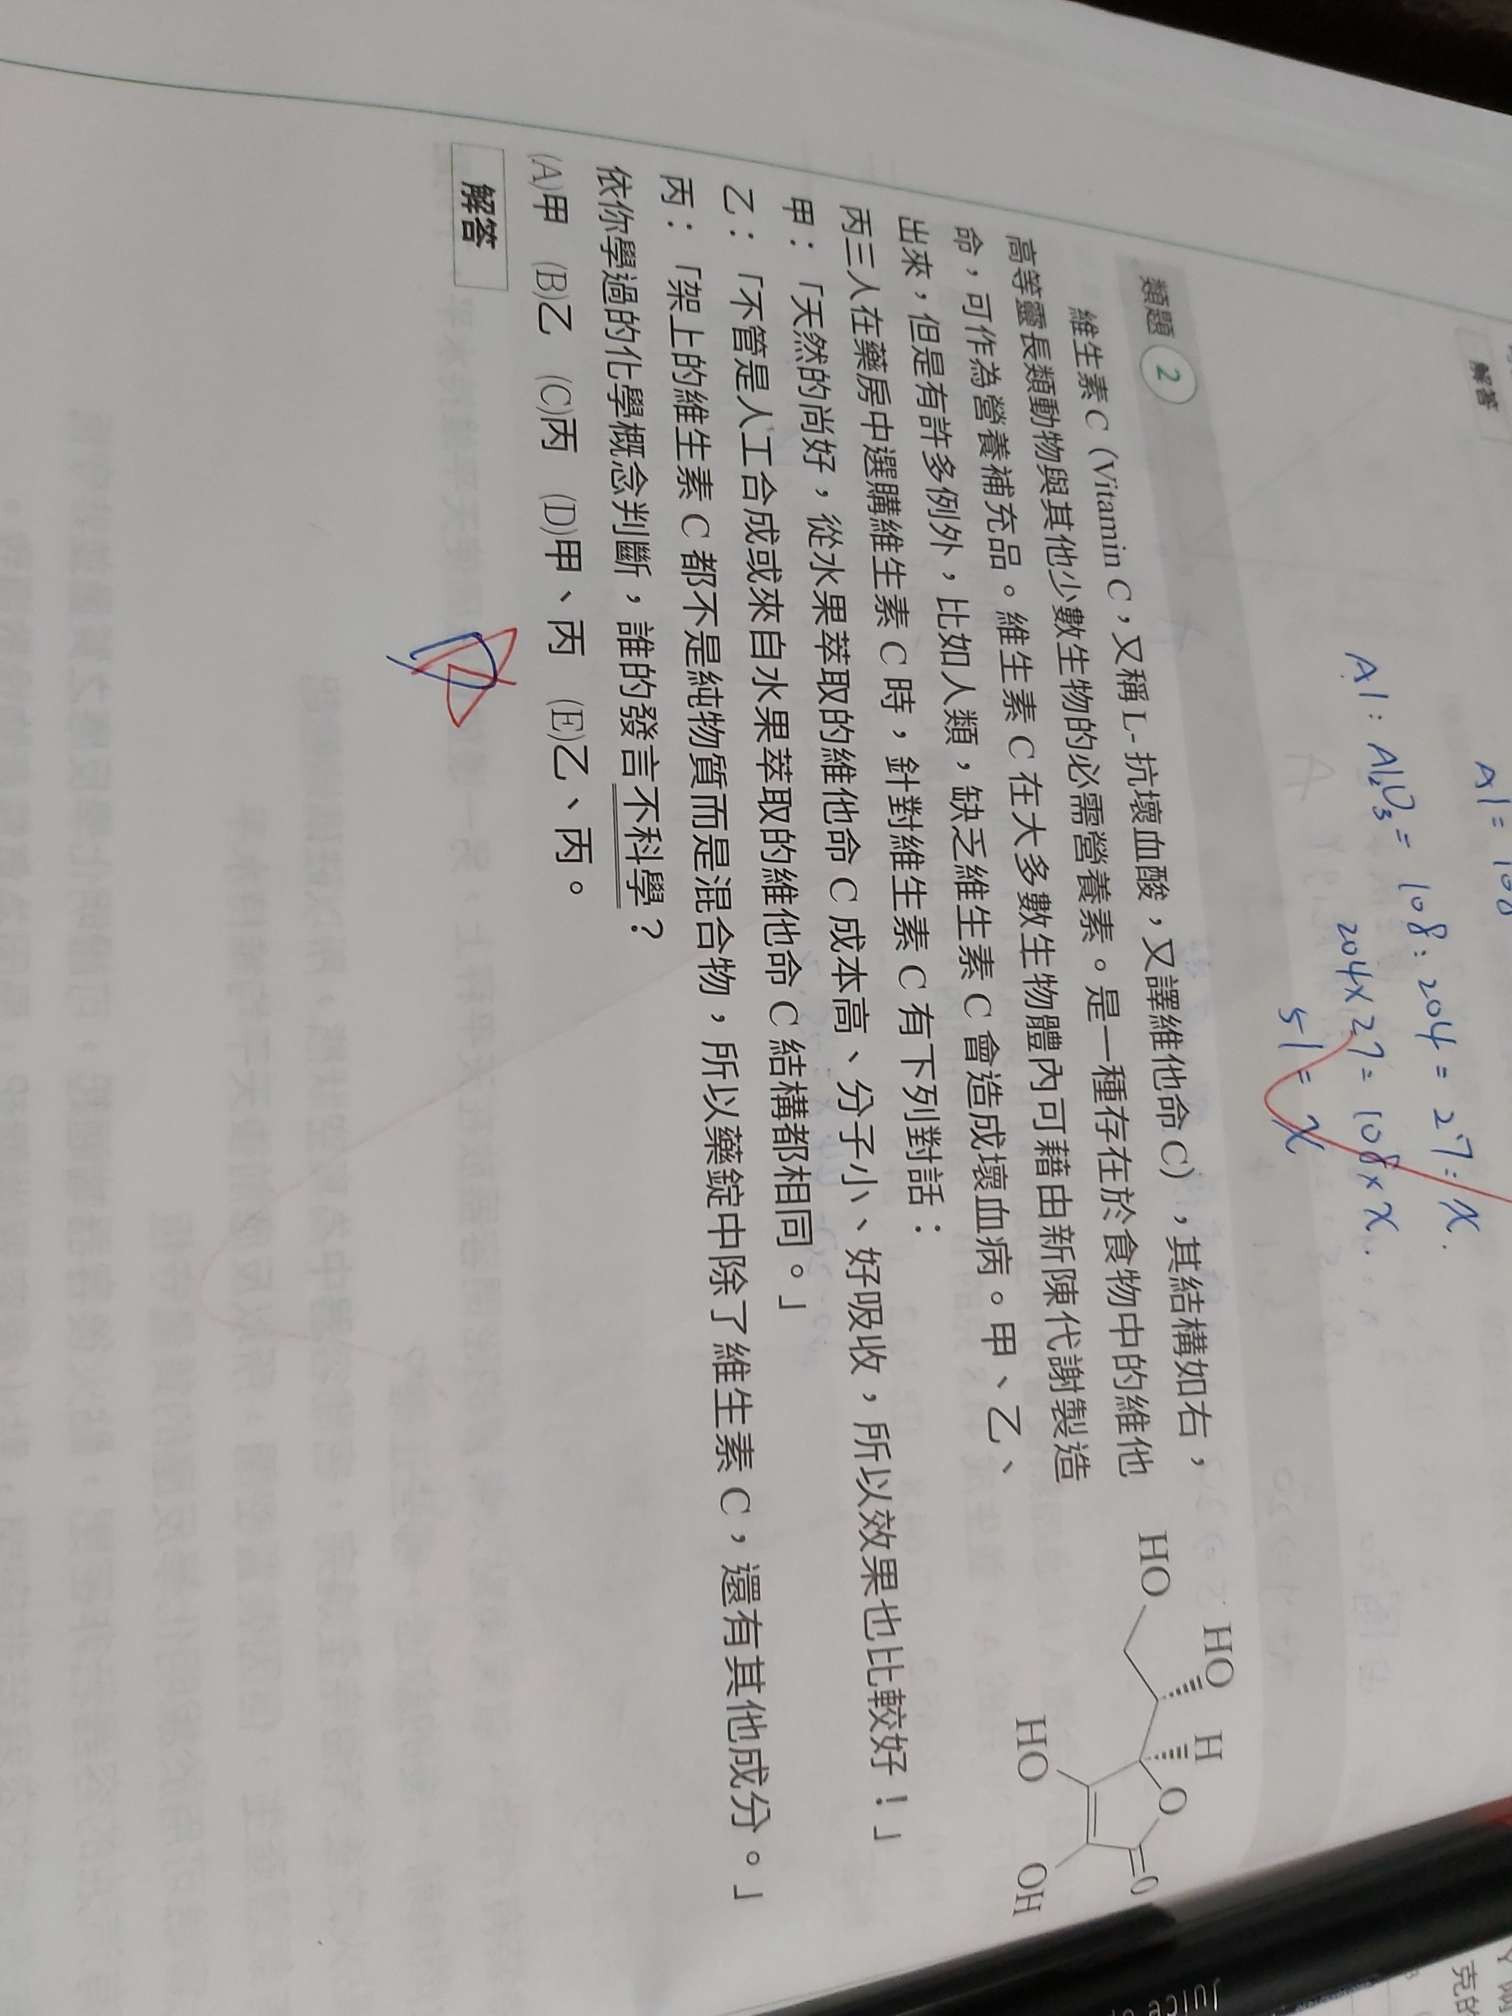 解答
Al = 108
Al : Al₂O₃ = 108 : 204 = 27 : x.
204×27 = 108×x.
51 = x
類題 2
維生素 C（Vitamin C，又稱 L- 抗壞血酸，又譯維他命 C），其結構如右，
高等靈長類動物與其他少數生物的必需營養素。是一種存在於食物中的維他
命，可作為營養補充品。維生素 C 在大多數生物體內可藉由新陳代謝製造
出來，但是有許多例外，比如人類，缺乏維生素 C 會造成壞血病。甲、乙、
丙三人在藥房中選購維生素 C 時，針對維生素 C 有下列對話：
HO
HO
H
O
O
HO
OH
甲：「天然的尚好，從水果萃取的維他命 C 成本高、分子小、好吸收，所以效果也比較好！」
乙：「不管是人工合成或來自水果萃取的維他命 C 結構都相同。」
丙：「架上的維生素 C 都不是純物質而是混合物，所以藥錠中除了維生素 C，還有其他成分。」
依你學過的化學概念判斷，誰的發言不科學？
(A)甲 (B)乙 (C)丙 (D)甲、丙 (E)乙、丙。
解答
Juice
克的